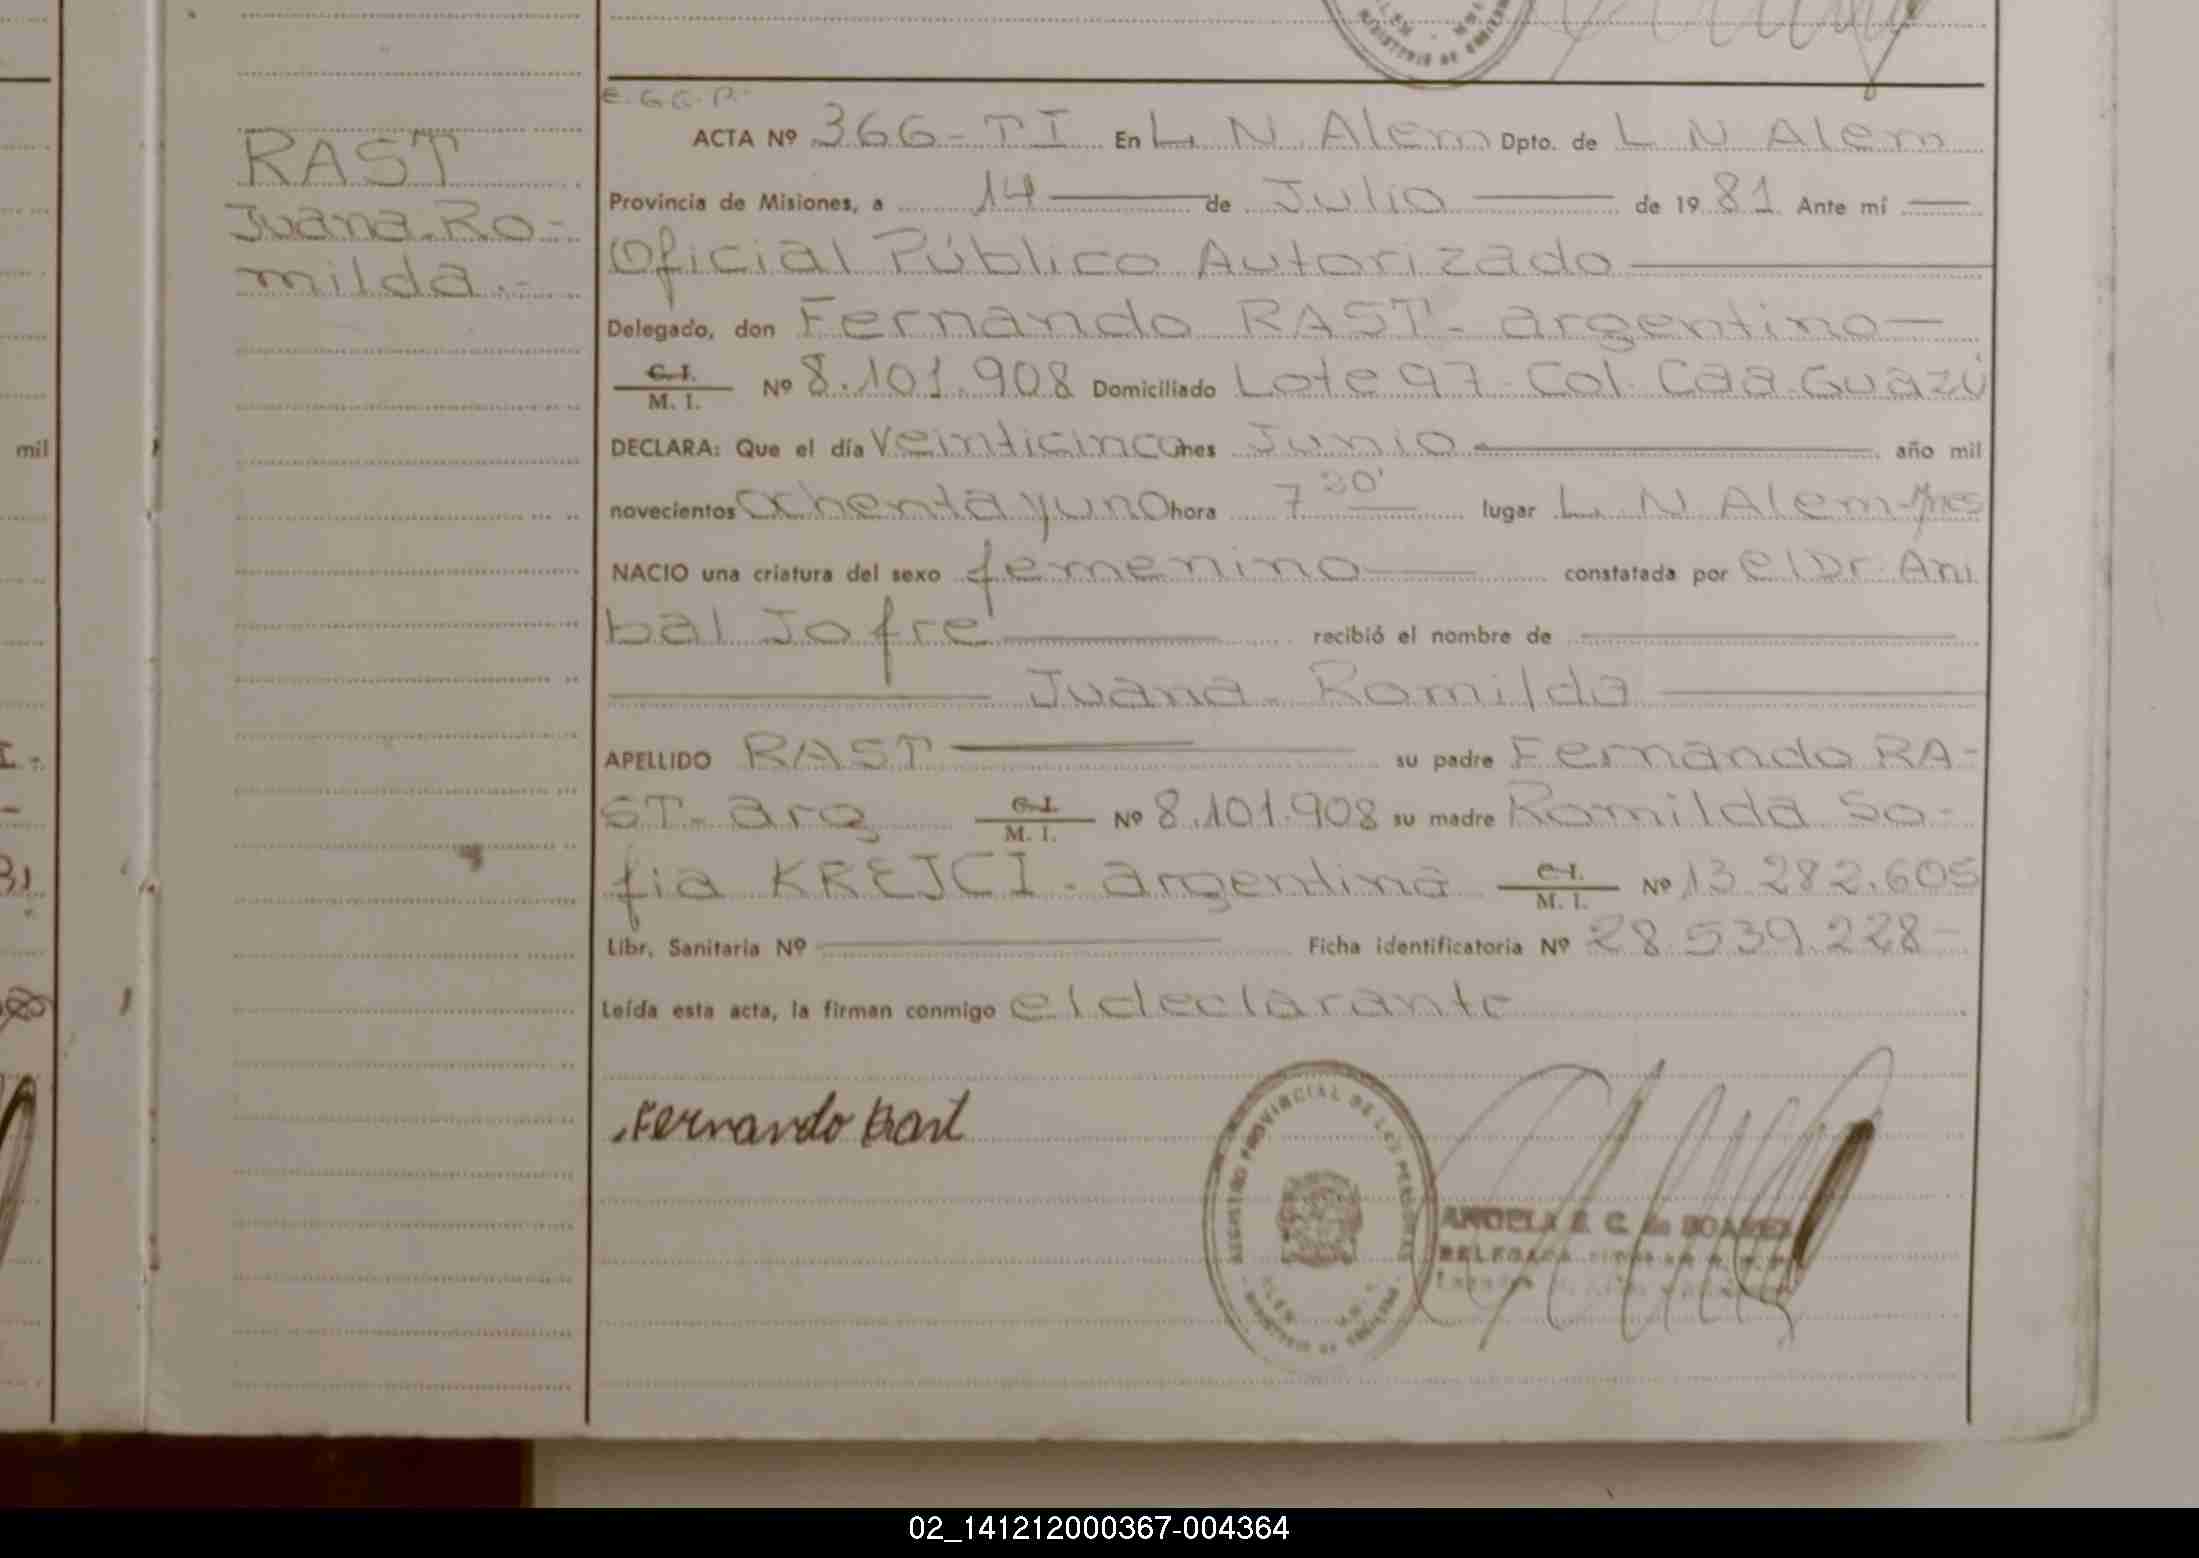 E.G.G.R.
ACTA Nº 366-TI En L. N. Alem Dpto. de L N Alem
RAST
Juana Ro-
milda.-
Provincia de Misiones, a 14 de Julio de 1981 Ante mí
Oficial Público Autorizado
Delegado, don Fernando RAST - argentino
C. I.
M. I. Nº 8.101.908 Domiciliado Lote 97 Col. Caa Guazú
mil
DECLARA: Que el día Veinticinco mes Junio año mil
novecientos ochenta y uno hora 7 30' lugar L. N Alem-Mnes
NACIO una criatura del sexo femenino constatada por el Dr. Ani
bal Jofre recibió el nombre de
Juana Romilda
APELLIDO RAST su padre Fernando RA-
ST- arg C. I. M. I. Nº 8.101.908 su madre Romilda So-
fia KREJCI - argentina C. I. M. I. Nº 13.282.605
Libr. Sanitaria Nº Ficha identificatoria Nº 28.539.228-
Leída esta acta, la firman conmigo el declarante
Fernando Rast
REGISTRO PROVINCIAL DE LAS PERSONAS
MINISTERIO DE
ANGELA E. C. de SOAREZ
DELEGADA
02_141212000367-004364